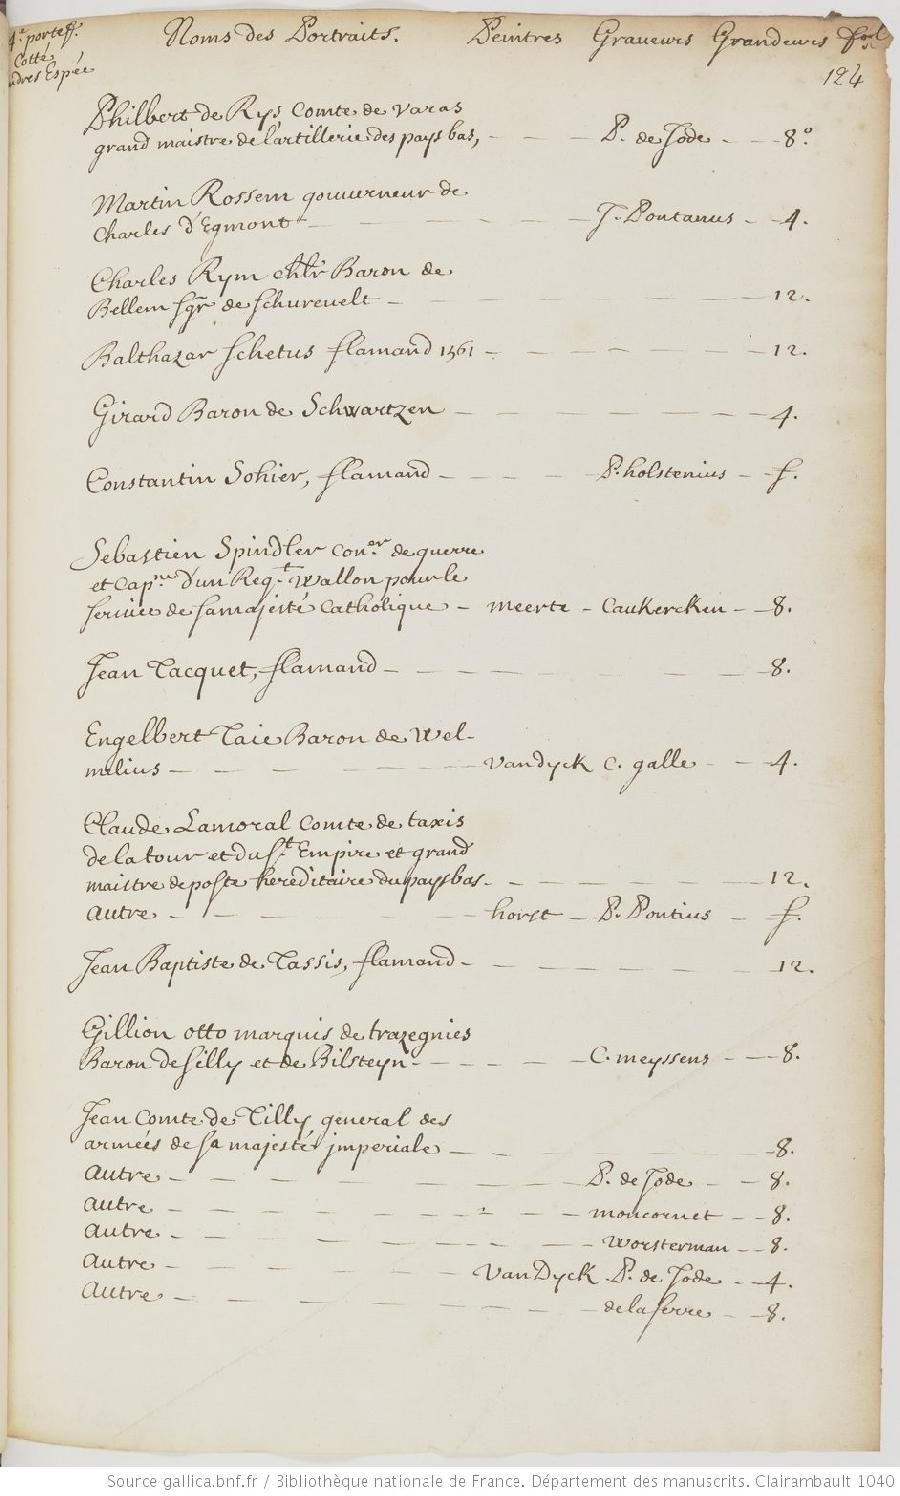 4e portef. Noms des Portraits. Peintres Graveurs Grandeurs fol
Cotté
124
Philbert de Rys Comte de Varas
grand maistre de lartillerie des pays bas, P. de Jode 8o
Martin Rossem gouuerneur de
Charles d'Egmont J. Pontanus 4.
Charles Rym chlr Baron de
Bellem sgr de Schureuelt 12.
Balthazar Schetus flamand 1561 12.
Girard Baron de Schwartzen 4.
Constantin Sohier, flamand P. holstenius f.
Sebastien Spindler coner de guerre
et Capne d'un Regt Wallon pour le
seruice de sa majesté Catholique meerte Caukercken 8.
Jean Tacquet, flamand 8.
Engelbert Taie Baron de Wel-
melius VanDyck C. galle 4.
Claude Lamoral Comte de taxis
de la tour et du St Empire et grand
maistre de poste hereditaire du pays bas 12.
autre horst P. Pontius f.
Jean Baptiste de Tassis, flamand 12.
Gillion otto marquis de trazegnies
Baron de Silly et de Bilsteyn C. meyssens 8.
Jean Comte de Tilly general des
armées de sa majesté jmperiale 8.
autre P. de Jode 8.
autre moncornet 8.
autre Worsterman 8.
autre VanDyck P. de Jode 4.
autre de la serre 8.
Source gallica.bnf.fr / Bibliothèque nationale de France. Département des manuscrits. Clairambault 1040